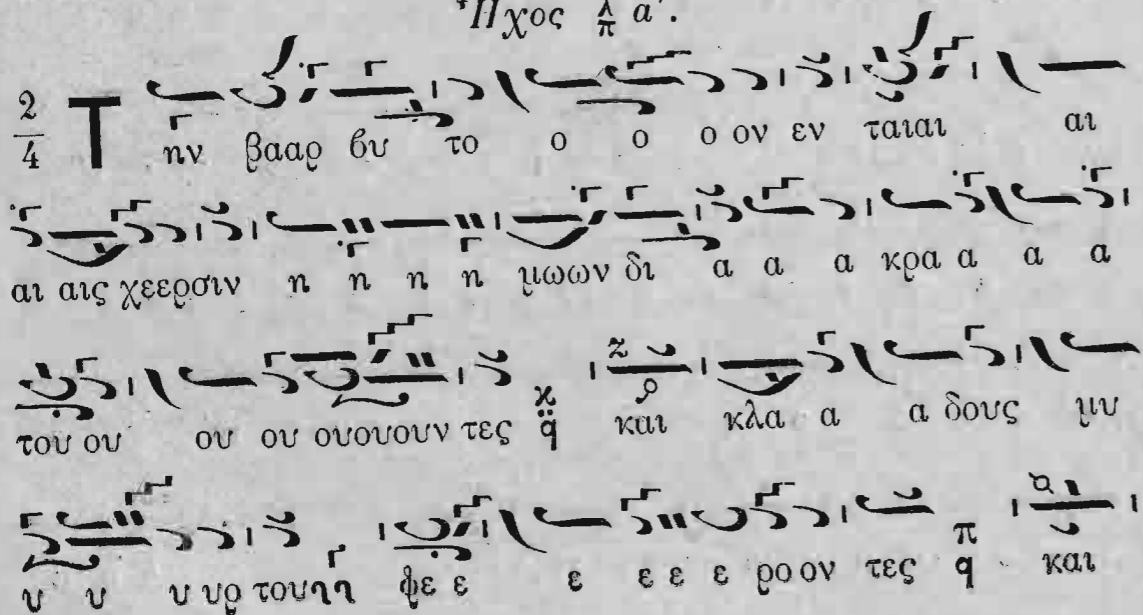 Ἦχος λ/π α΄.
2/4 Τ ην βααρ βυ το ο ο ο ον εν ταιαι αι
αι αις χεερσιν η η η η μωων δι α α α κρα α α α
του ου ου ου ουουουν τες ϗ q και κλα α α δους μυ
υ υ υ υρ του φε ε ε ε ε ε ρο ον τες π q και